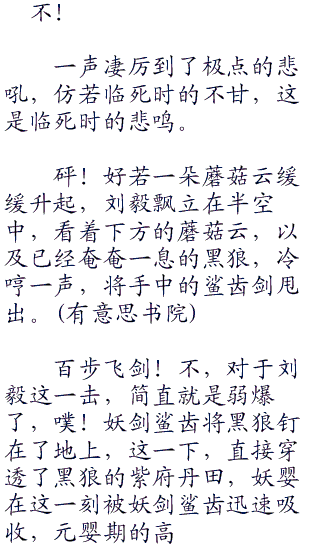 不！
一声凄厉到了极点的悲
吼，仿若临死时的不甘，这
是临死时的悲鸣。
砰！好若一朵蘑菇云缓
缓升起，刘毅飘立在半空
中，看着下方的蘑菇云，以
及已经奄奄一息的黑狼，冷
哼一声，将手中的鲨齿剑甩
出。(有意思书院)
百步飞剑！不，对于刘
毅这一击，简直就是弱爆
了，噗！妖剑鲨齿将黑狼钉
在了地上，这一下，直接穿
透了黑狼的紫府丹田，妖婴
在这一刻被妖剑鲨齿迅速吸
收，元婴期的高